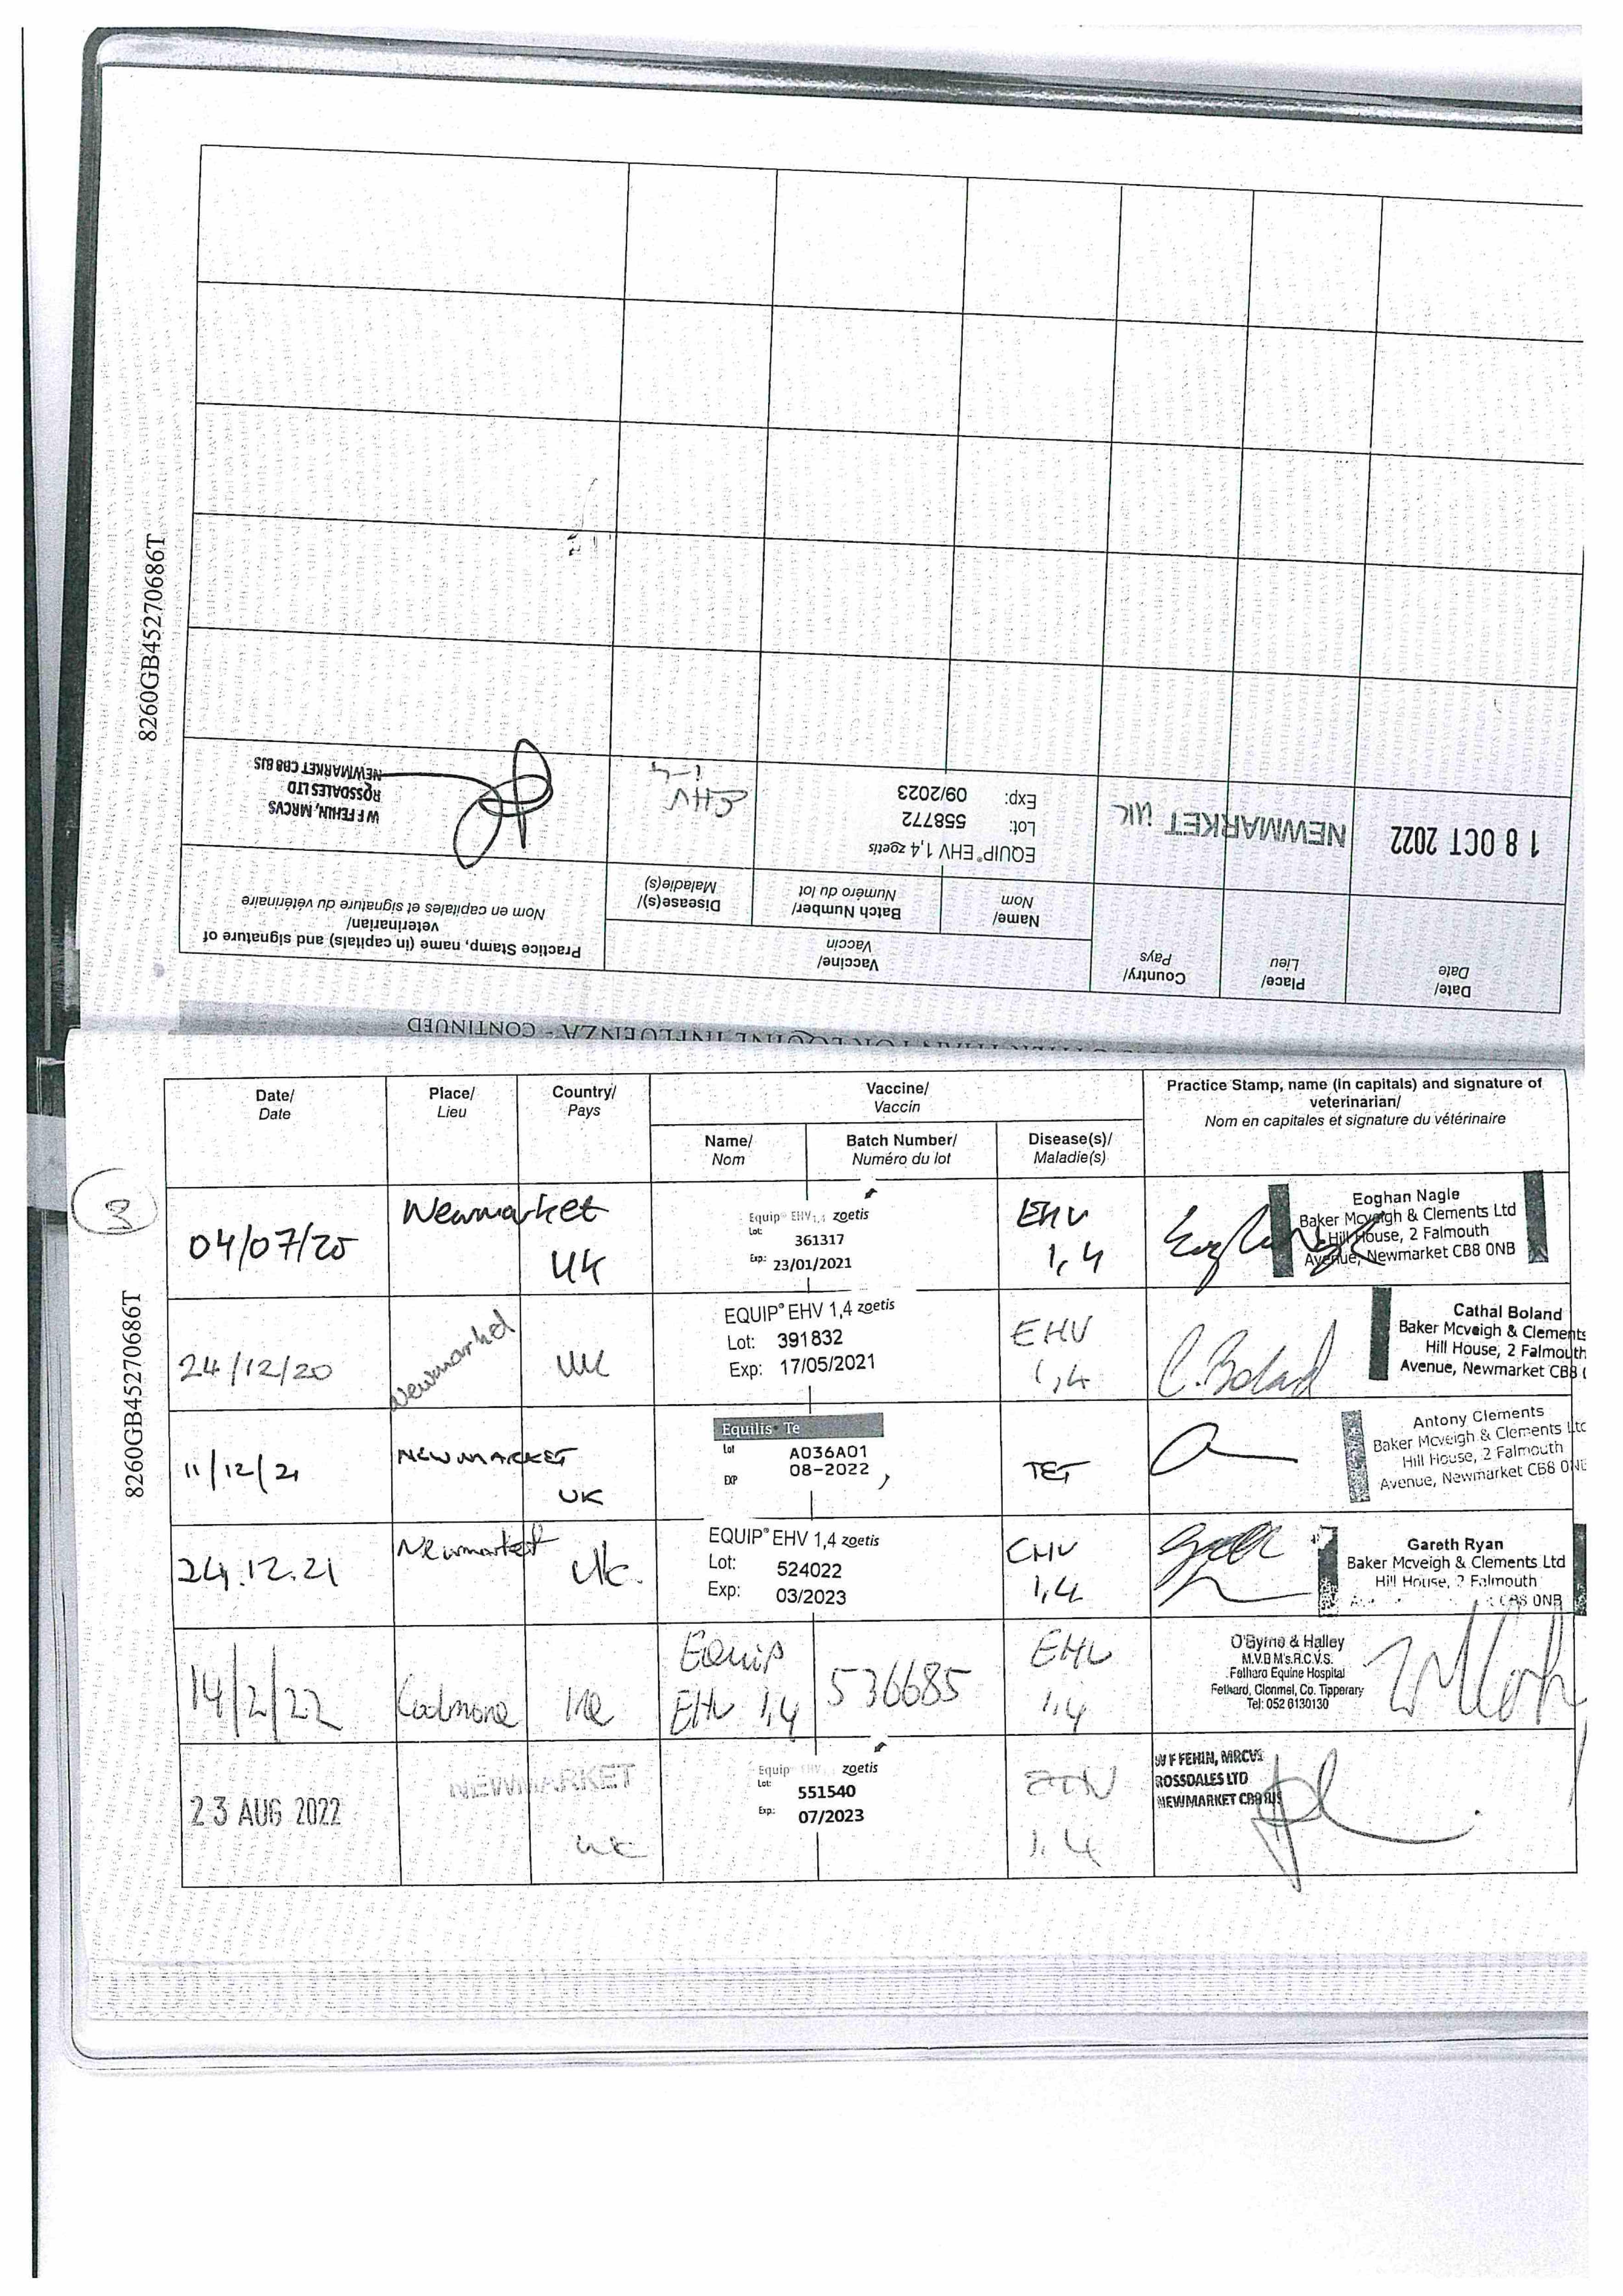 8260GB45270686T
OTHER THAN FOR EQUINE INFLUENZA - CONTINUED
Date/
Date
Place/
Lieu
Country/
Pays
Vaccine/
Vaccin
Name/
Nom
Batch Number/
Numéro du lot
Disease(s)/
Maladie(s)
Practice Stamp, name (in capitals) and signature of
veterinarian/
Nom en capitales et signature du vétérinaire
18 OCT 2022
NEWMARKET UK
EQUIP® EHV 1,4 zoetis
Lot: 558772
Exp: 09/2023
EHV
1-4
W F FEHIN, MRCVS
ROSSDALES LTD
NEWMARKET CB8 8JS
3
8260GB45270686T
Date/
Date
Place/
Lieu
Country/
Pays
Vaccine/
Vaccin
Name/
Nom
Batch Number/
Numéro du lot
Disease(s)/
Maladie(s)
Practice Stamp, name (in capitals) and signature of
veterinarian/
Nom en capitales et signature du vétérinaire
04/07/20
Newmarket
UK
Equip® EHV1,4 zoetis
Lot: 361317
Exp: 23/01/2021
EHV
1,4
Eoghan Nagle
Baker Mcveigh & Clements Ltd
Hill House, 2 Falmouth
Avenue, Newmarket CB8 0NB
24/12/20
Newmarket
UK
EQUIP® EHV 1,4 zoetis
Lot: 391832
Exp: 17/05/2021
EHV
1,4
C. Boland
Cathal Boland
Baker Mcveigh & Clements
Hill House, 2 Falmouth
Avenue, Newmarket CB8
11/12/21
NEWMARKET
UK
Equilis® Te
Lot A036A01
EXP 08-2022
TET
Antony Clements
Baker Mcveigh & Clements Ltd
Hill House, 2 Falmouth
Avenue, Newmarket CB8 0NB
24.12.21
Newmarket
UK.
EQUIP® EHV 1,4 zoetis
Lot: 524022
Exp: 03/2023
EHV
1,4
Gareth Ryan
Baker Mcveigh & Clements Ltd
Hill House, 2 Falmouth
CB8 0NB
14/2/22
Coolmore
IRE
Equip
EHV 1,4
536685
EHV
1,4
O'Byrne & Halley
M.V.B M's.R.C.V.S.
Fethard Equine Hospital
Fethard, Clonmel, Co. Tipperary
Tel: 052 6130130
23 AUG 2022
NEWMARKET
UK
Equip EHV zoetis
Lot: 551540
Exp: 07/2023
EHV
1,4
W F FEHIN, MRCVS
ROSSDALES LTD
NEWMARKET CB8 8JS